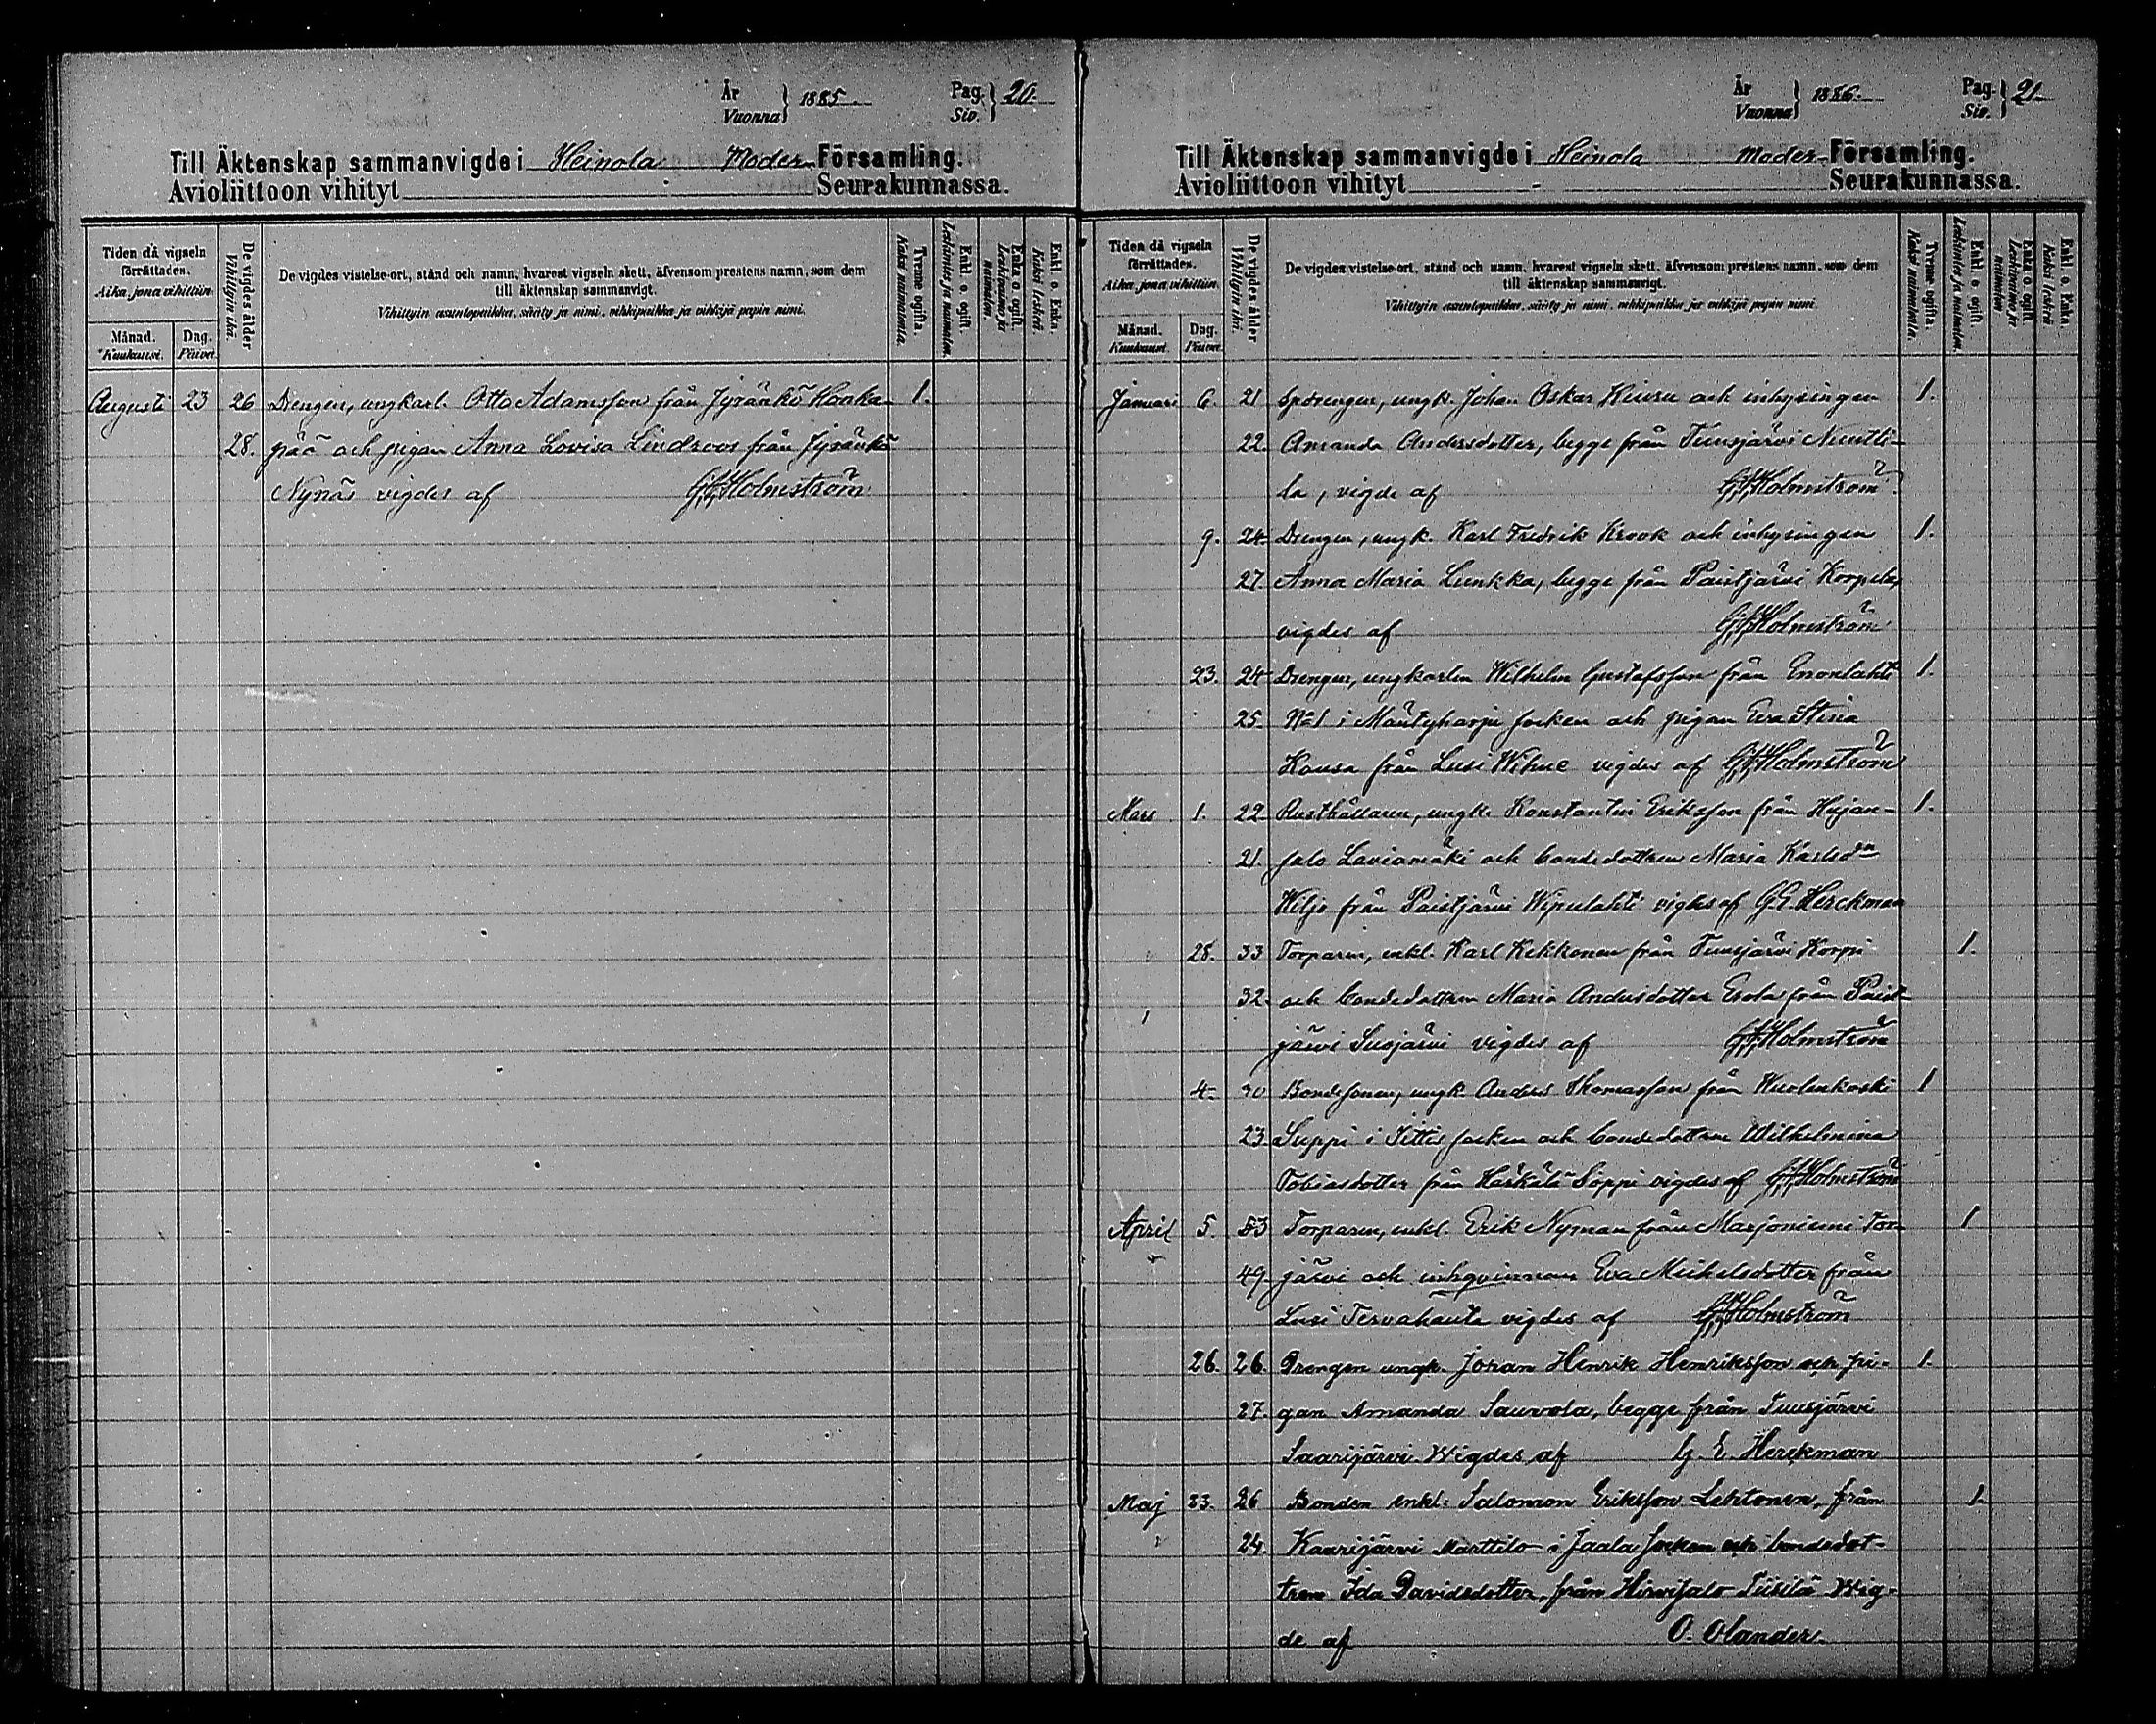 År
Vuonna } 1885.
Pag.
Siv. } 20.
Till Äktenskap sammanvigde i Heinola Moder Församling.
Avioliittoon vihityt Seurakunnassa.
Tiden då vigseln förrättades.
Aika, jona vihittiin
Månad.
Kuukausi.
Dag.
Päivä.
De vigdes ålder
Vihittyin ikä.
De vigdes vistelse-ort, stånd och namn, hvarest vigseln skett, äfvensom prestens namn, som dem
till äktenskap sammanvigt.
Vihittyin asuntopaikka, sääty ja nimi, vihkipaikka ja vihkijä papin nimi.
Tvenne ogifta.
Kaksi naimatonta.
Enkl. o. ogift.
Leskimies ja naimaton.
Enka o. ogift.
Leskivaimo ja naimaton.
Enkl. o. Enka.
Kaksi leskeä.
Augusti 23 26 Drengen, ungkarl. Otto Adamsson från Jyränkö Kooka- 1.
28. pää och pigan Anna Lovisa Lindroos från Jyränkö
Nynäs vigdes af G.A. Holmström
År
Vuonna } 1886.
Pag.
Siv. } 21.
Till Äktenskap sammanvigde i Heinola Moder Församling.
Avioliittoon vihityt Seurakunnassa.
Tiden då vigseln förrättades.
Aika, jona vihittiin
Månad.
Kuukausi.
Dag.
Päivä.
De vigdes ålder
Vihittyin ikä.
De vigdes vistelse-ort, stånd och namn, hvarest vigseln skett, äfvensom prestens namn, som dem
till äktenskap sammanvigt.
Vihittyin asuntopaikka, sääty ja nimi, vihkipaikka ja vihkijä papin nimi
Tvenne ogifta.
Kaksi naimatonta.
Enkl. o. ogift.
Leskimies ja naimaton.
Enka o. ogift.
Leskivaimo ja naimaton.
Enkl. o. Enka.
Kaksi leskeä
Januari 6. 21 ungk. Johan Oskar och inhysingen 1.
22. Amanda Andersdotter, begge från Tuusjärvi Nuutti-
la, vigde af G.A. Holmström
9. 24 Drengen, ungk. Karl Fredrik Krook och inhysingen 1.
27. Anna Maria Lunkka, begge från Paistjärvi Korpela,
vigdes af G.A. Holmström
23. 24 Drengen, ungkarlen Wilhelm Gustafsson från Enonlahti 1.
25. N=1 i Mäntyharju socken och pigan Eva Stina
Kousa från Lusi vigdes af G.A. Holmström
Mars 1. 22 Rusthållaren, ungk. Konstantin Eriksson från Hujan- 1.
21. salo Laviamäki och bondedottren Maria Karlsdn
Wiljo från Paistjärvi Wipulahti vigdes af G.E. Herckman
28. 33 Torparen, enkl. Karl Kekkonen från Tuusjärvi Korpi 1.
32. och bondedottren Maria Andersdotter Erola från Paist-
järvi Susjärvi vigdes af G.A. Holmström
4. 30 Bondesonen, ungk. Anders Thomasson från Wuolenkoski 1
23 Seppi i Iittis socken och bondedottren Wilhelmina
Tobiasdotter från Härkälä Söppi vigdes af G.A. Holmström
April 5. 53 Torparen, enkl. Erik Nyman från Marjoniemi Tor- 1
49. järvi och inhqvinnan Eva Mikelsdotter från
Lusi Tervahauta vigdes af G.A. Holmström
26. 26. Drengen ungk. Johan Henrik Henriksson och pi- 1.
27. gan Amanda Sauvola, begge från Tuusjärvi
Saarijärvi Wigdes af G. E. Herckman
Maj 23. 26 Bonden enkl: Salomon Eriksson Lehtonen, från 1.
24. Kaarijärvi Marttilo i Jaala socken och bondedot-
tren Ida Davidsdotter, från Hirvisalo Tiisilä Wig-
de af O. Olander.